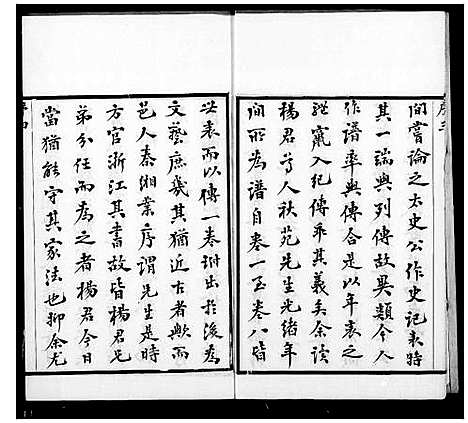 序三
間嘗論之太史公作史記表特
其一端與列傳故異類今人
作譜率與傳合是以年表之
經竄入紀傳乖其義矣余讀
楊君芎人秋苑先生光緒年
間所為譜自卷一至卷八皆
以表而以傳一卷附出於後為
文藝庶幾其猶近古者歟而
邑人秦緗業序謂先生是時
方官浙江其書故皆楊君兄
弟分任而為之者楊君今日
當猶能守其家法也抑余尤
序四